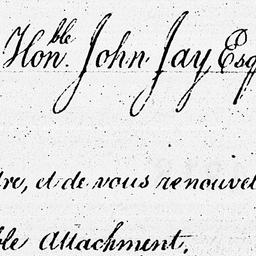 Hon.ble John Jay Esq
re, et de vous renouvel
ble attachment.